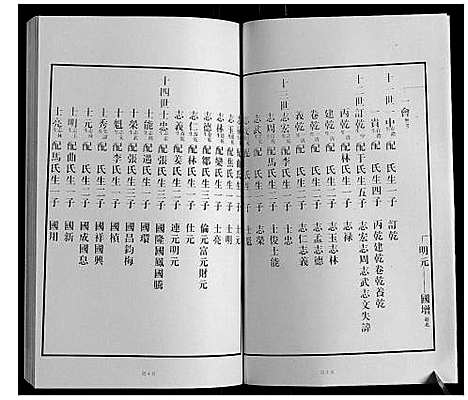 明元——國增
一會
十一世一忠 配 氏生二子 訂乾
一貴 配 氏生四子 丙乾建乾卷乾蓋乾
十二世訂乾 配于氏生五子 志宏志周志武志文失諱
丙乾 配林氏生一子 志祿
建乾 配 氏生二子 志玉志林
卷乾 配 氏生二子 志孟志德
義乾 配 氏生二子 志仁志義
十三世志宏 配李氏生一子 士忠
志周 配 氏生二子 士俊士能
志武 配 氏生一子 志榮
志玉 配焦氏生一子 士明
志林 配欒氏生一子 士亮
志德 配鄒氏生三子 倫元富元財元
志仁 配林氏生一子 仕元
志義 配姜氏生二子 連元明元
十四世士忠 配張氏生三子 國隆國鳳國騰
士能 配遇氏生一子 國環
士榮 配張氏生二子 國昌鈞梅
士魁 配李氏生一子 國楨
士秀 配 氏生二子 國祥國興
士元 配 氏生二子 國成國息
士明 配曲氏生一子 國新
士亮 配馬氏生一子 國用